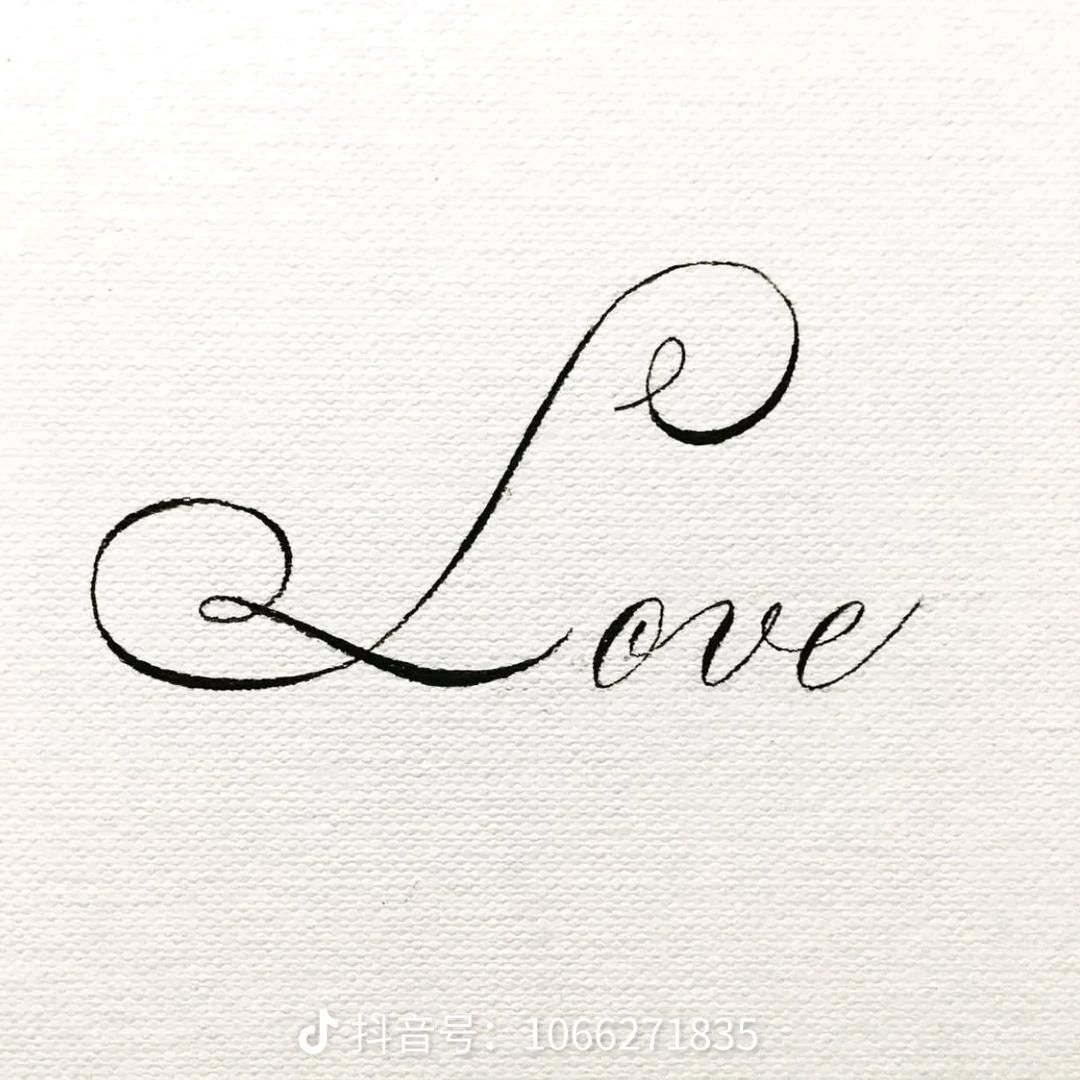 Love
抖音号：1066271835